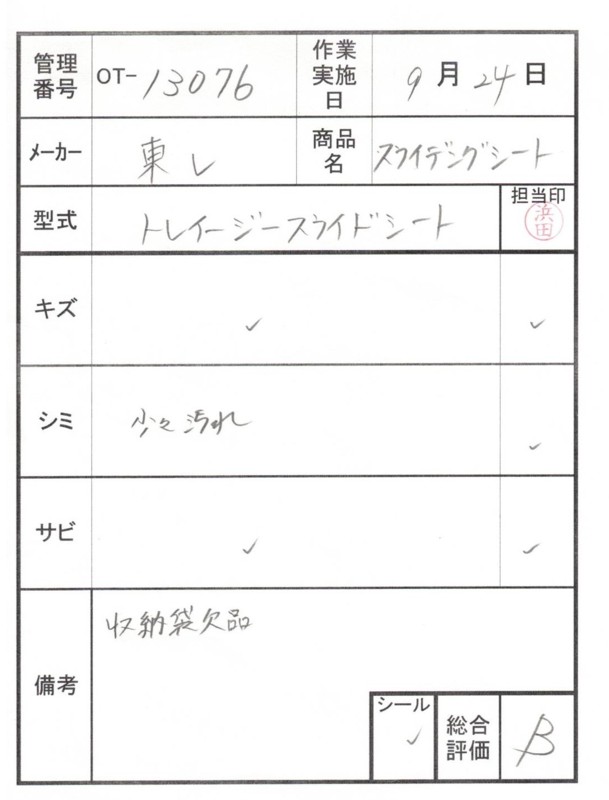 管理番号 OT-13076 作業実施日 9月24日
メーカー 東レ 商品名 スライデングシート
型式 トレイージースライドシート 担当印 浜田
キズ ✓ ✓
シミ 少々汚れ ✓
サビ ✓ ✓
備考 収納袋欠品
シール ✓ 総合評価 B